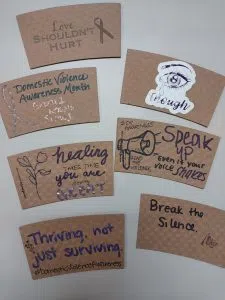 Love
SHOULDN'T
HURT
Domestic Violence
Awareness Month
Enough
healing
TAKES TIME
you are
Speak
UP
even if your
voice SHAKES
Thriving, not
just surviving.
Break the
Silence.